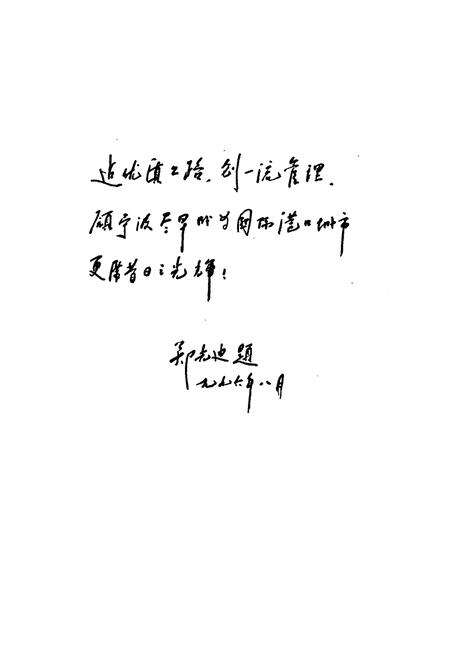 造优质工路，创一流管理，
愿宁波尽早成为国际港口城市
更胜昔日之光辉！
郑光迪题
九九六年八月